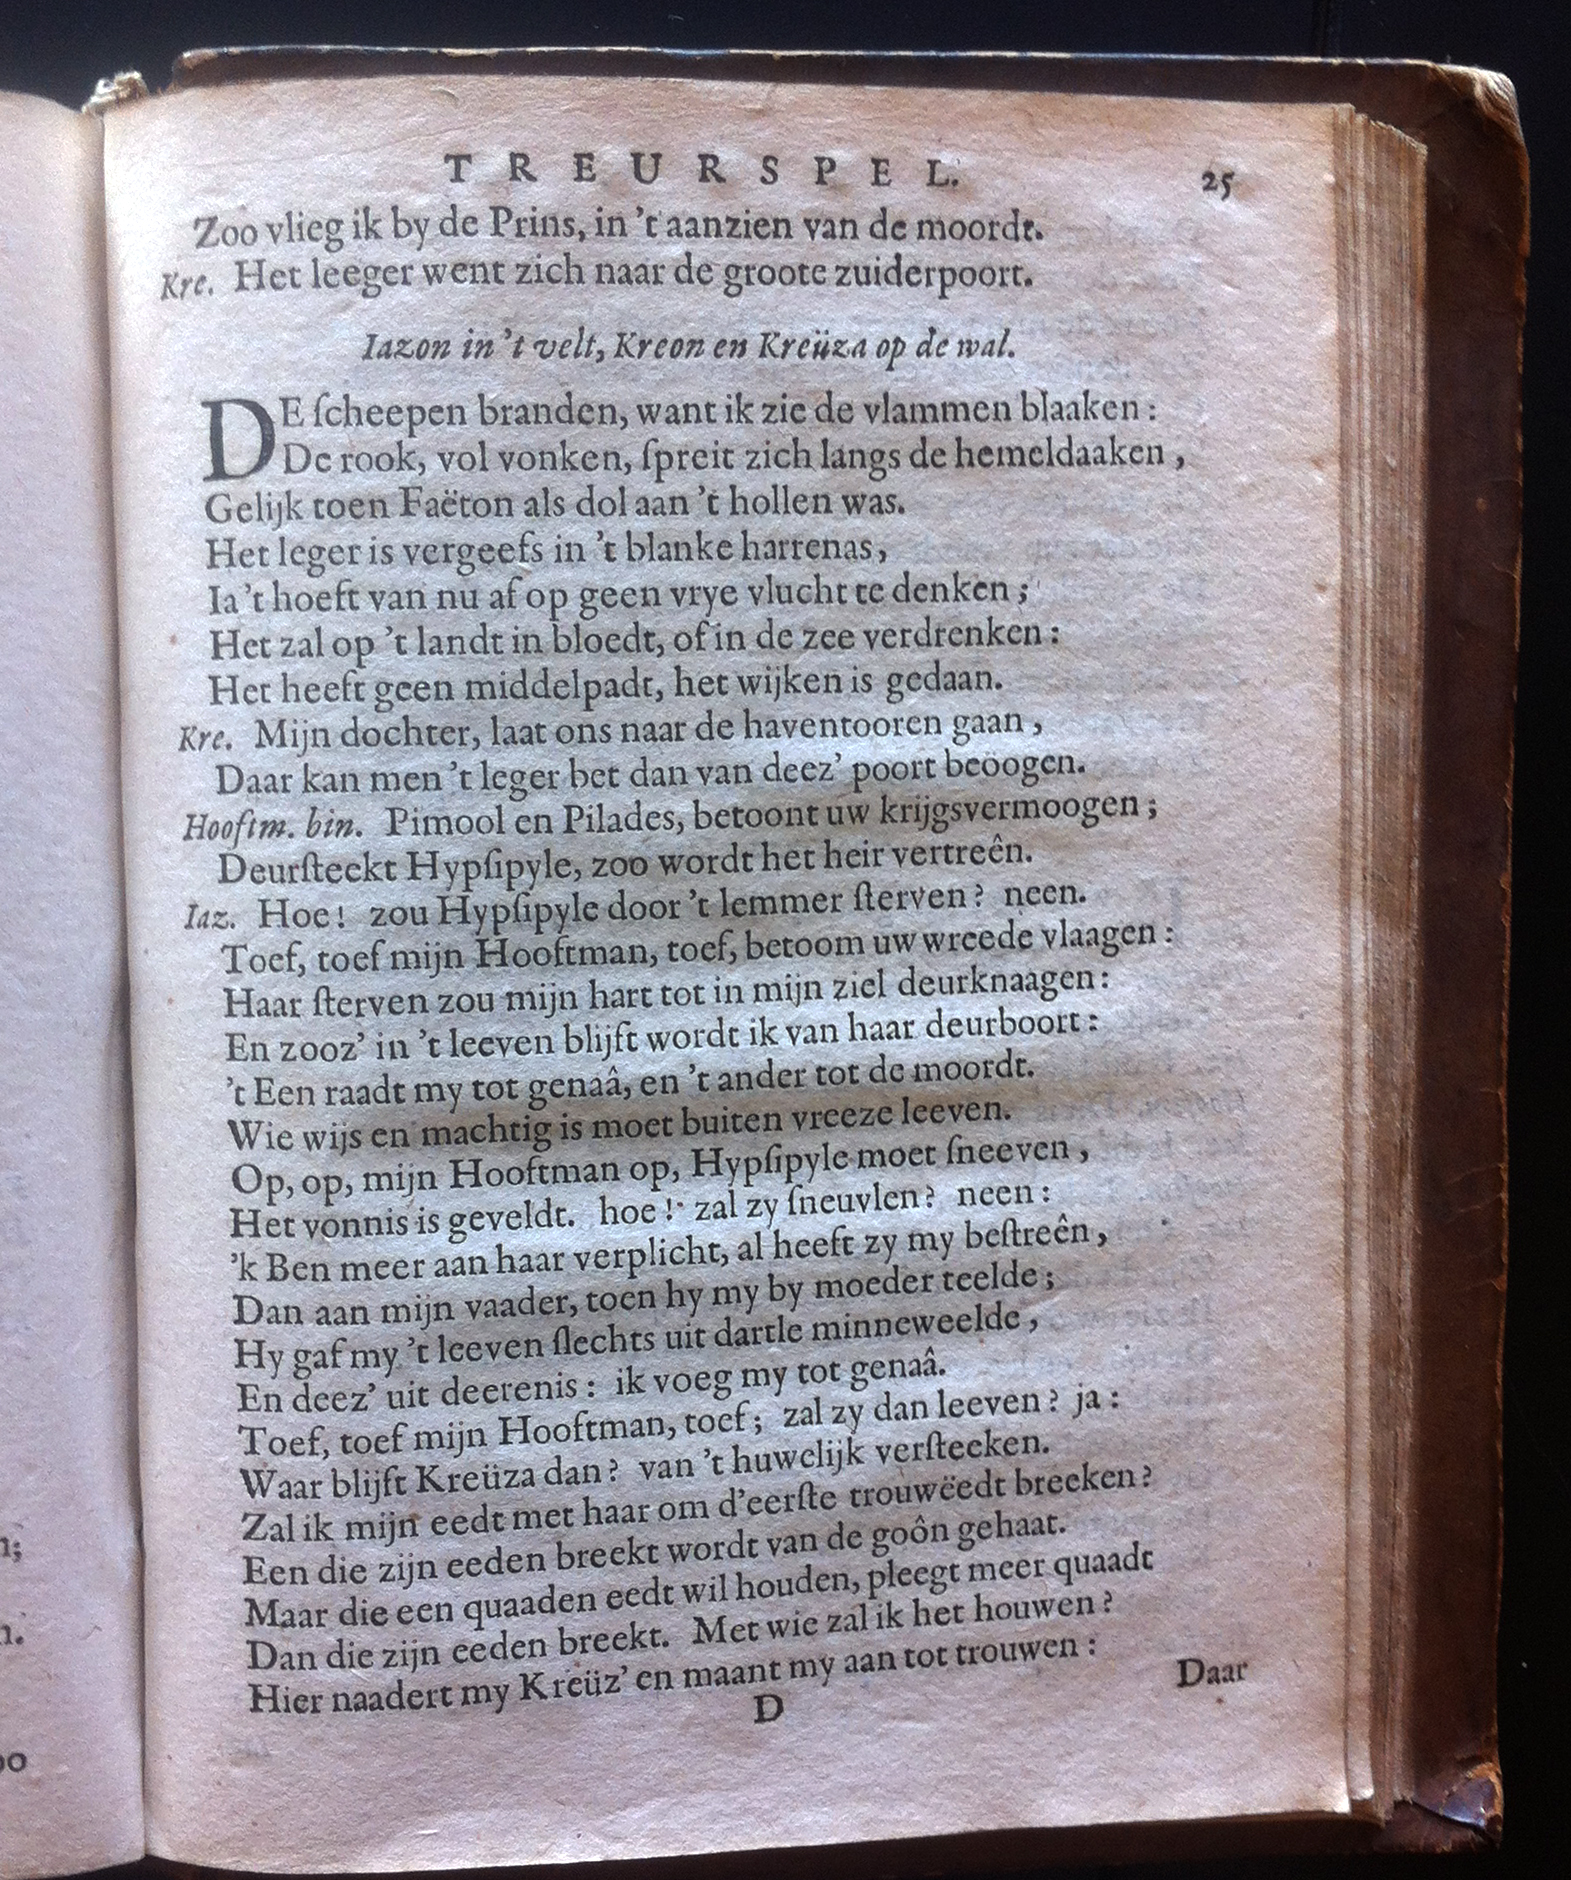 TREURSPEL. 25
Zoo vlieg ik by de Prins, in 't aanzien van de moordt.
Kre. Het leeger went zich naar de groote zuiderpoort.
Iazon in 't velt, Kreon en Kreüza op de wal.
DE ſcheepen branden, want ik zie de vlammen blaaken:
De rook, vol vonken, ſpreit zich langs de hemeldaaken,
Gelijk toen Faëton als dol aan 't hollen was.
Het leger is vergeefs in 't blanke harrenas,
Ia 't hoeft van nu af op geen vrye vlucht te denken;
Het zal op 't landt in bloedt, of in de zee verdrenken:
Het heeft geen middelpadt, het wijken is gedaan.
Kre. Mijn dochter, laat ons naar de haventooren gaan,
Daar kan men 't leger bet dan van deez' poort beöogen.
Hooftm. bin. Pimool en Pilades, betoont uw krijgsvermoogen;
Deurſteekt Hypſipyle, zoo wordt het heir vertreên.
Iaz. Hoe! zou Hypſipyle door 't lemmer ſterven? neen.
Toef, toef mijn Hooftman, toef, betoom uw wreede vlaagen:
Haar ſterven zou mijn hart tot in mijn ziel deurknaagen:
En zooz' in 't leeven blijft wordt ik van haar deurboort:
't Een raadt my tot genaâ, en 't ander tot de moordt.
Wie wijs en machtig is moet buiten vreeze leeven.
Op, op, mijn Hooftman op, Hypſipyle moet ſneeven,
Het vonnis is geveldt. hoe! zal zy ſneuvlen? neen:
'k Ben meer aan haar verplicht, al heeft zy my beſtreên,
Dan aan mijn vaader, toen hy my by moeder teelde;
Hy gaf my 't leeven ſlechts uit dartle minneweelde,
En deez' uit deerenis: ik voeg my tot genaâ.
Toef, toef mijn Hooftman, toef; zal zy dan leeven? ja:
Waar blijft Kreüza dan? van 't huwelijk verſteeken.
Zal ik mijn eedt met haar om d'eerſte trouwëedt breeken?
Een die zijn eeden breekt wordt van de goôn gehaat.
Maar die een quaaden eedt wil houden, pleegt meer quaadt
Dan die zijn eeden breekt. Met wie zal ik het houwen?
Hier naadert my Kreüz' en maant my aan tot trouwen:
D
Daar